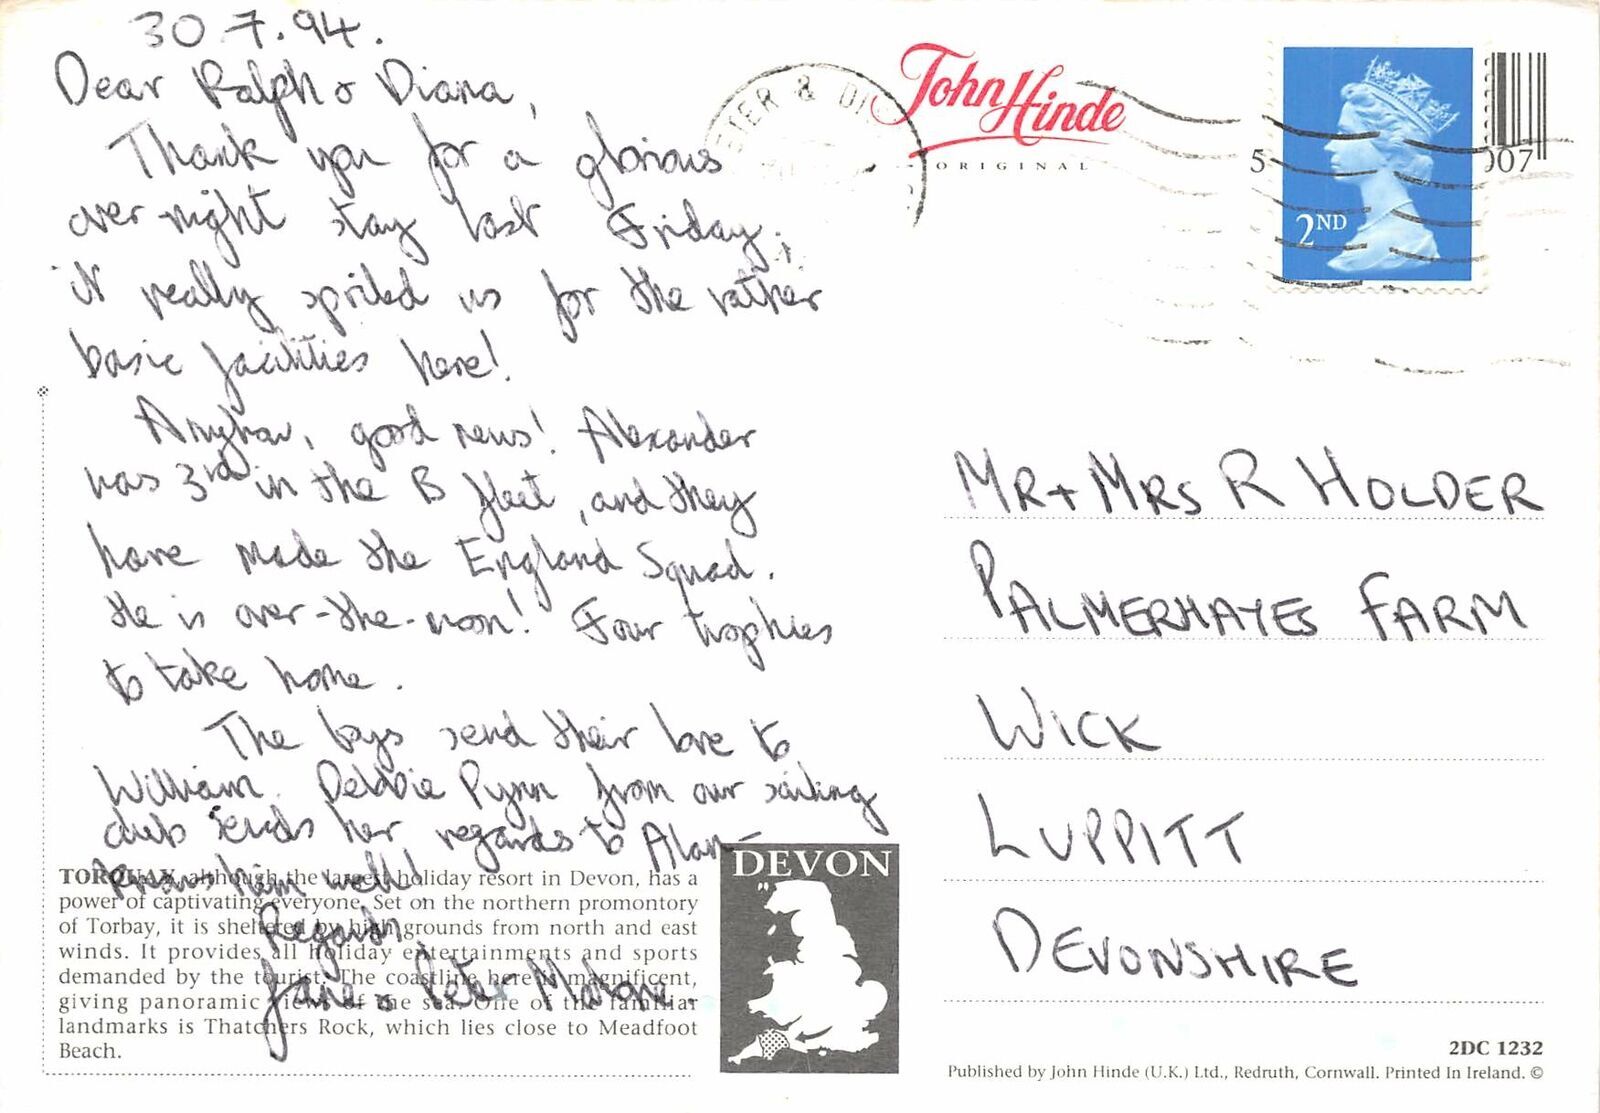 30.7.94.
Dear Ralph & Diana,
Thank you for a glorious
over-night stay last Friday;
it really spoiled us for the rather
basic facilities here!
Anyhow, good news! Alexander
was 3rd in the B fleet, and they
have made the England Squad.
He is over-the-moon! Four trophies
to take home.
The boys send their love to
William. Debbie Pynn from our sailing
club sends her regards to Alan -
knows him well!
Regards,
Jane & Peter Malone.
TORQUAY, although the largest holiday resort in Devon, has a
power of captivating everyone. Set on the northern promontory
of Torbay, it is sheltered by high grounds from north and east
winds. It provides all holiday entertainments and sports
demanded by the tourist. The coastline here is magnificent,
giving panoramic views of the sea. One of the familiar
landmarks is Thatchers Rock, which lies close to Meadfoot
Beach.
DEVON
ETER & DI
John Hinde
ORIGINAL
5
007
2ND
MR + MRS R HOLDER
PALMERHAYES FARM
WICK
LUPPITT
DEVONSHIRE
2DC 1232
Published by John Hinde (U.K.) Ltd., Redruth, Cornwall. Printed In Ireland. ©